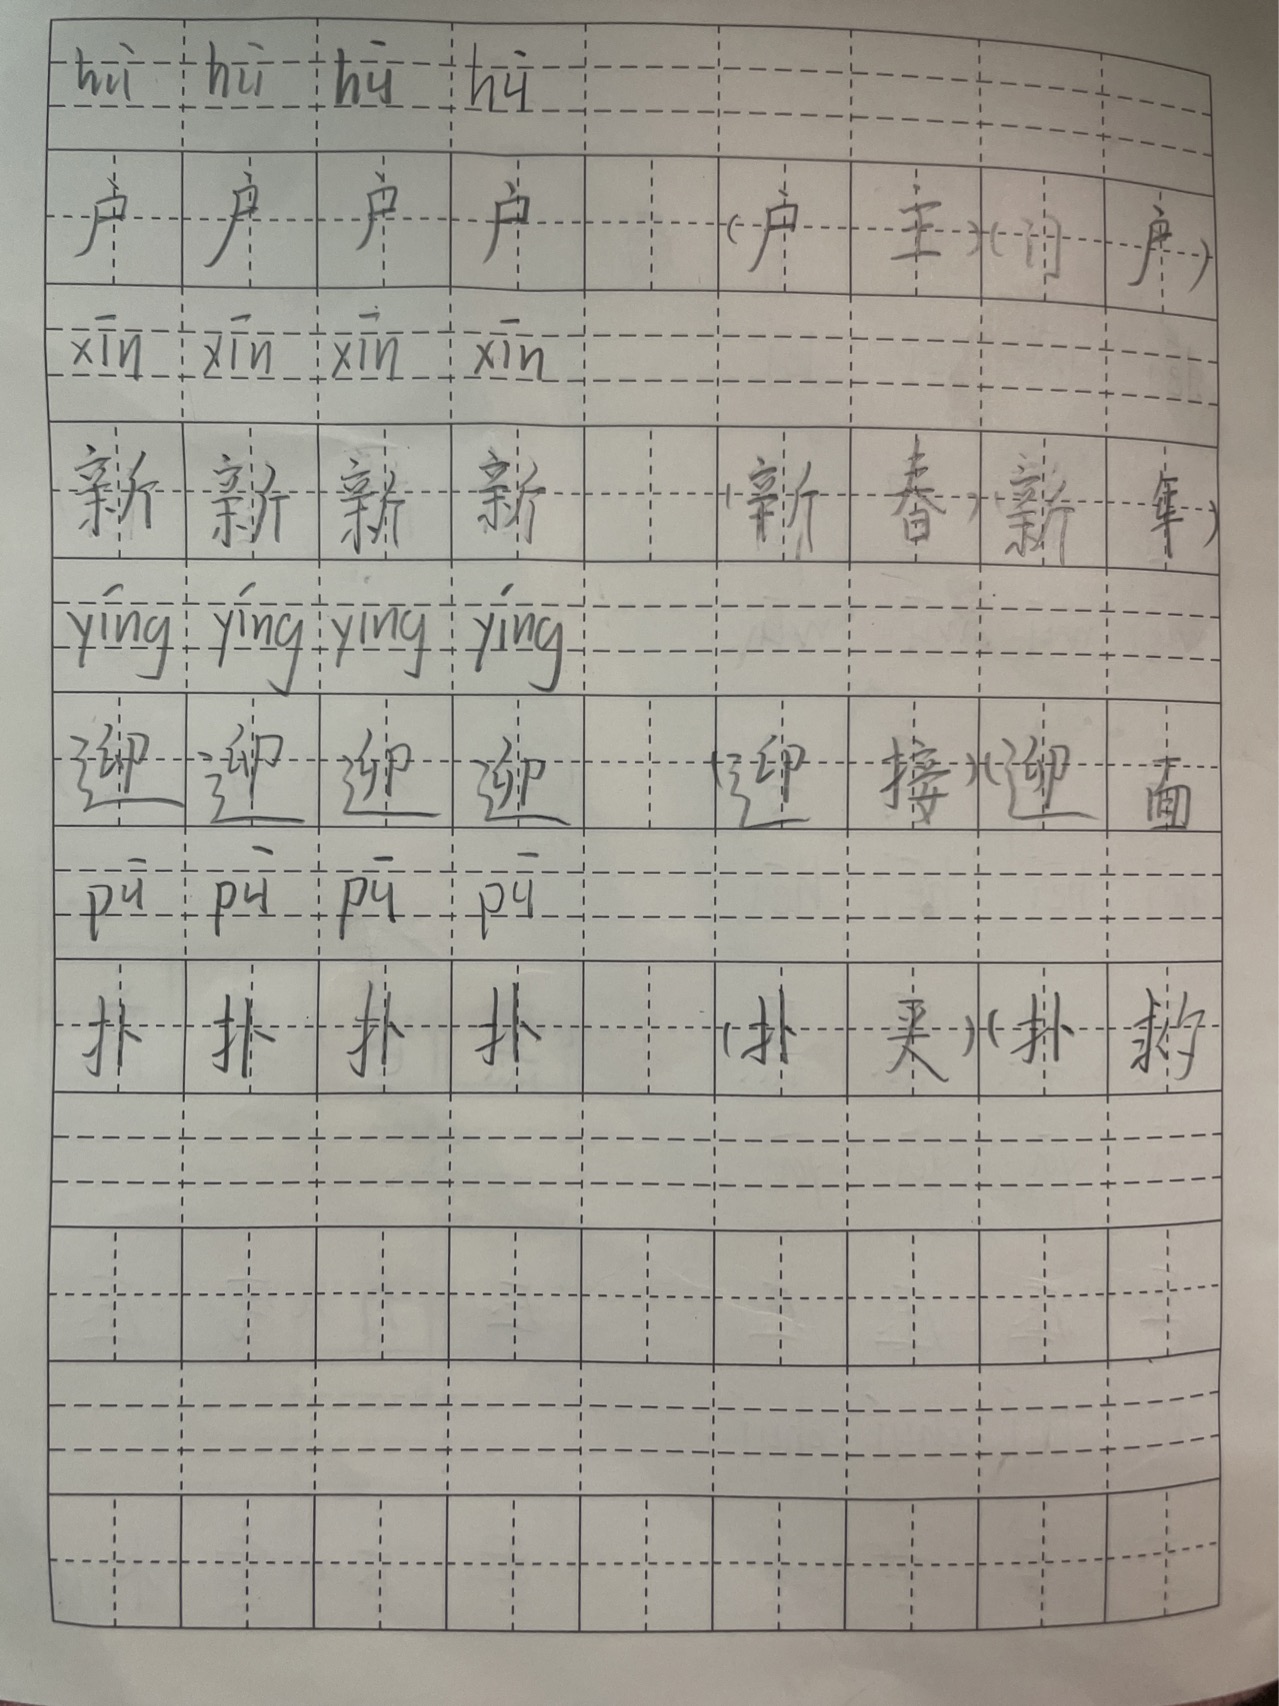 hù hù hū hū
户 户 户 户 (户主)(门户)
xīn xīn xīn xīn
新 新 新 新 (新春)(新年)
yíng yíng yíng yíng
迎 迎 迎 迎 (迎接)(迎面
pū pū pū pū
扑 扑 扑 扑 (扑)(扑